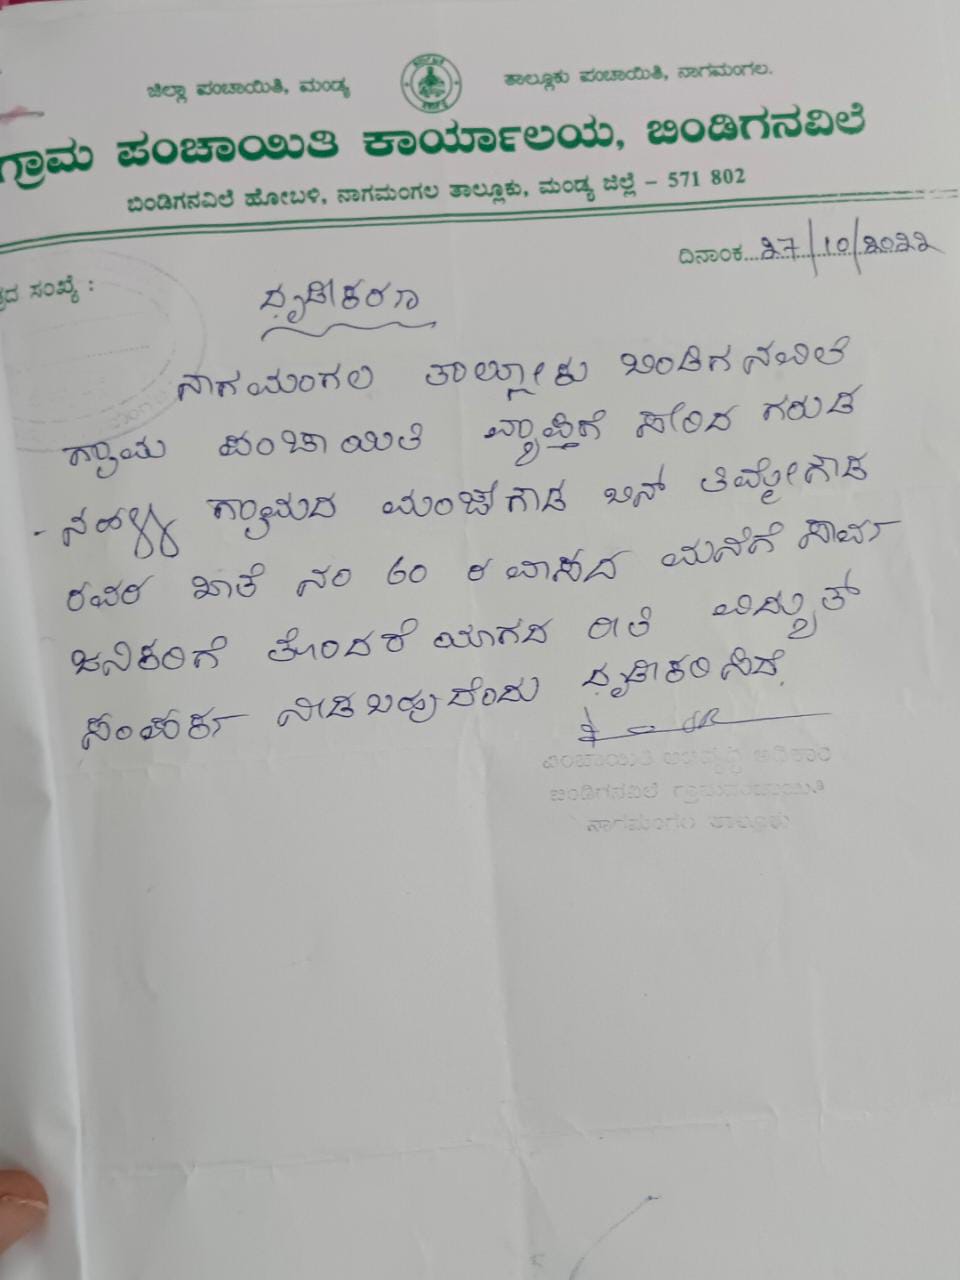 ಜಿಲ್ಲಾ ಪಂಚಾಯಿತಿ, ಮಂಡ್ಯ
ತಾಲ್ಲೂಕು ಪಂಚಾಯಿತಿ, ನಾಗಮಂಗಲ.
ಗ್ರಾಮ ಪಂಚಾಯಿತಿ ಕಾರ್ಯಾಲಯ, ಬಿಂಡಿಗನವಿಲೆ
ಬಿಂಡಿಗನವಿಲೆ ಹೋಬಳಿ, ನಾಗಮಂಗಲ ತಾಲ್ಲೂಕು, ಮಂಡ್ಯ ಜಿಲ್ಲೆ - 571 802
ಸಂಖ್ಯೆ :
ದಿನಾಂಕ...27/10/2022
ದೃಢೀಕರಣ
ನಾಗಮಂಗಲ ತಾಲ್ಲೂಕು ಬಿಂಡಿಗನವಿಲೆ
ಗ್ರಾಮ ಪಂಚಾಯಿತಿ ವ್ಯಾಪ್ತಿಗೆ ಸೇರಿದ ಗರುಡ
- ನಹಳ್ಳಿ ಗ್ರಾಮದ ಮಂಚೇಗೌಡ ಬಿನ್ ತಿಮ್ಮೇಗೌಡ
ರವರ ಖಾತೆ ನಂ 60 ರ ವಾಸದ ಮನೆಗೆ ಸಾರ್ವ
ಜನಿಕರಿಗೆ ತೊಂದರೆಯಾಗದ ರೀತಿ ವಿದ್ಯುತ್
ಸಂಪರ್ಕ ನೀಡಬಹುದೆಂದು ದೃಢೀಕರಿಸಿದೆ.
ಪಂಚಾಯಿತಿ ಅಭಿವೃದ್ಧಿ ಅಧಿಕಾರಿ
ಬಿಂಡಿಗನವಿಲೆ ಗ್ರಾಮಪಂಚಾಯಿತಿ
ನಾಗಮಂಗಲ ತಾಲ್ಲೂಕು